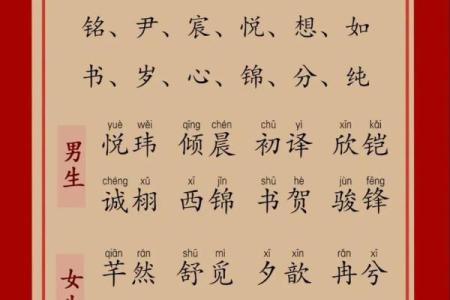 铭、尹、宸、悦、想、如
书、岁、心、锦、分、纯
男生
yuè wěi qīng chén chū yì xīn kǎi
悦玮 倾晨 初译 欣铠
chéng xǔ xī jǐn shū hè jùn fēng
诚栩 西锦 书贺 骏锋
女生
qiān rán shū mì xī xīn rǎn xī
芊然 舒觅 夕歆 冉兮